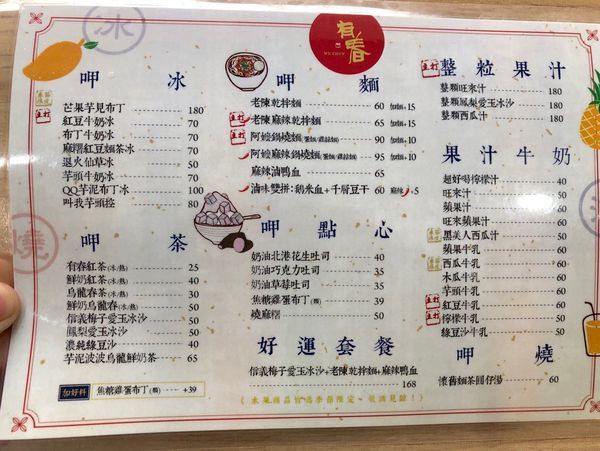 有春
冰
呷 冰
主打 芒果芋見布丁 180
紅豆牛奶冰 70
布丁牛奶冰 70
麻糬紅豆麵茶冰 70
退火仙草冰 50
芋頭牛奶冰 70
QQ芋泥布丁冰 100
叫我芋頭控 80
呷 茶
有春紅茶(冰/熱) 25
鮮奶紅茶(冰/熱) 40
烏龍春茶(冰/熱) 30
鮮奶烏龍春(冰/熱) 50
信義梅子愛玉冰沙 50
鳳梨愛玉冰沙 50
濃純綠豆沙 40
芋泥波波烏龍鮮奶茶 65
加好料 焦糖雞蛋布丁(顆) +39
呷 麵
老陳乾拌麵 60 加麵+15
主打 老陳麻辣乾拌麵 65 加麵+15
主打 阿嬤鍋燒麵(蛋麵/雞絲麵) 90 加麵+10
阿嬤麻辣鍋燒麵(蛋麵/雞絲麵) 95 加麵+10
麻辣滷鴨血 50
滷味雙拼:鵝米血+千層豆干 60 麻辣+5
呷 點 心
奶油北港花生吐司 40
奶油巧克力吐司 35
奶油草莓吐司 35
焦糖雞蛋布丁(顆) 39
燒麻糬 50
好 運 套 餐
信義梅子愛玉冰沙+老陳乾拌麵+麻辣鴨血
168
主打 整 粒 果 汁
整顆旺來汁 180
整顆鳳梨愛玉冰沙 180
整顆西瓜汁 180
果 汁 牛 奶
超好喝檸檬汁 40
旺來汁 50
蘋果汁 60
旺來蘋果汁 60
黑美人西瓜汁 50
蘋果牛乳 60
西瓜牛乳 50
木瓜牛乳 60
芋頭牛乳 60
主打 紅豆牛乳 60
主打 檸檬牛乳 50
綠豆沙牛乳 50
呷 燒
懷舊麵茶圓仔湯 60
燒